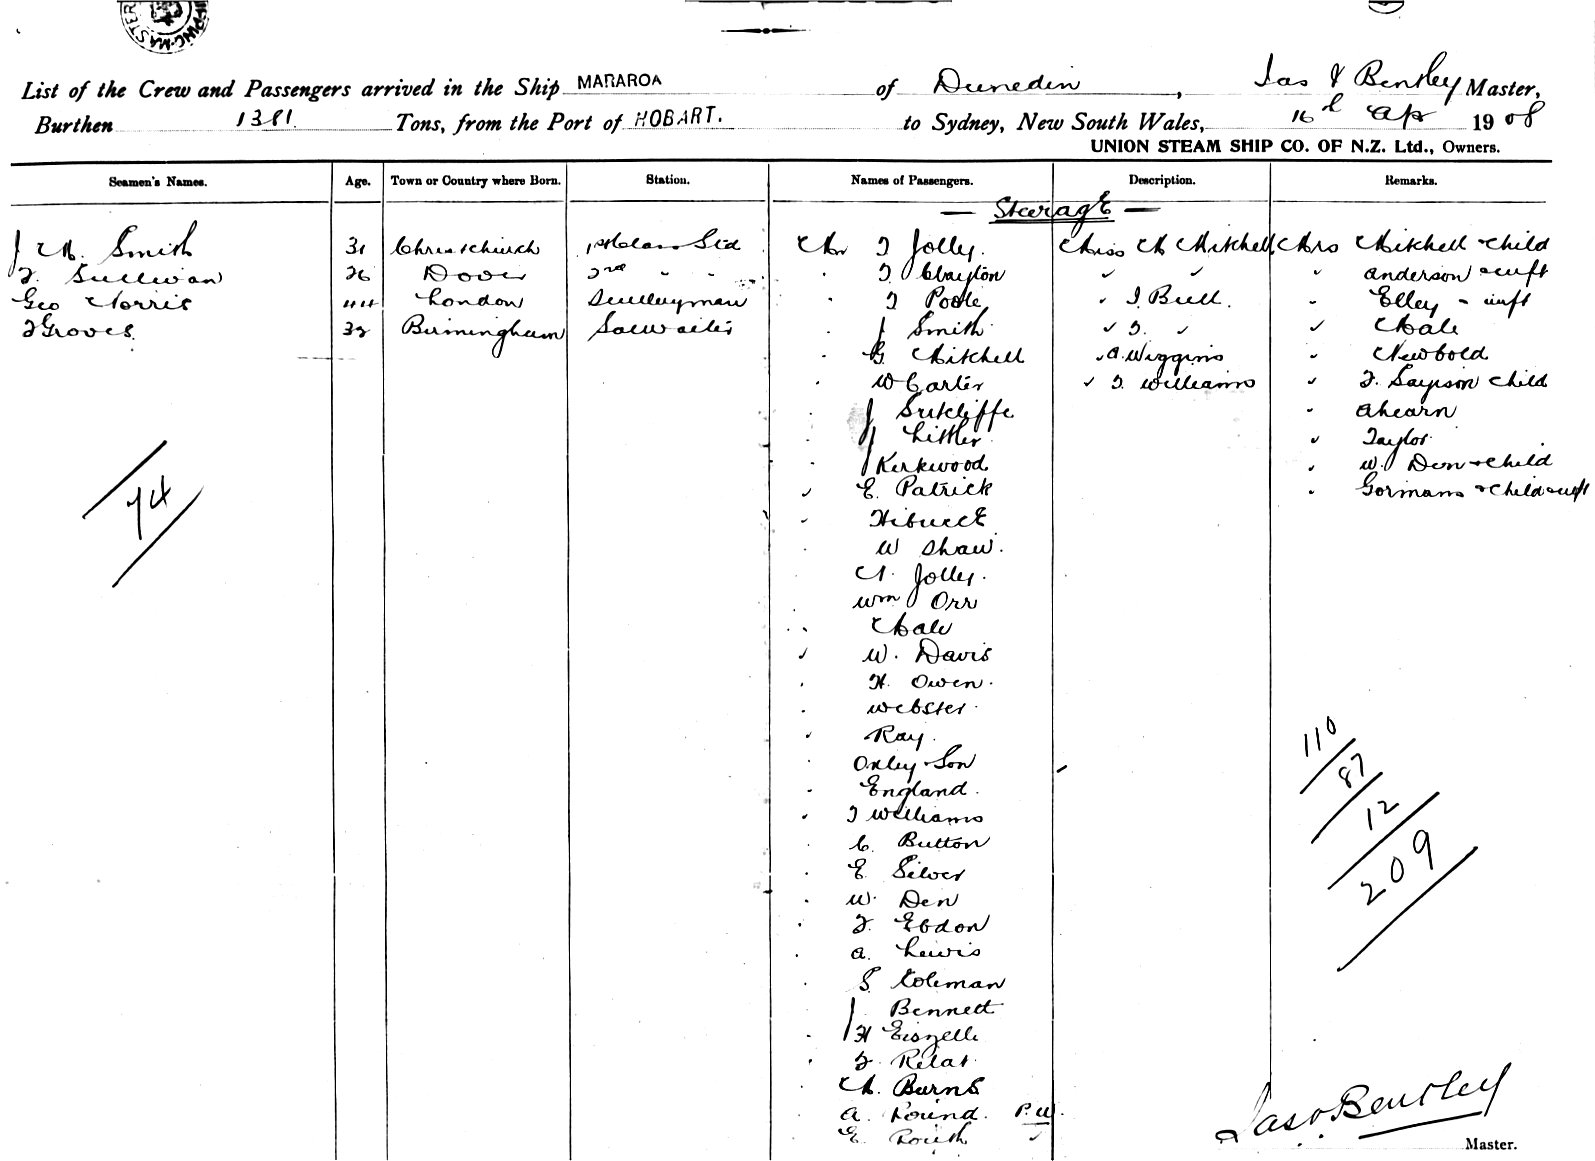 SHIPPING MASTER
List of the Crew and Passengers arrived in the Ship MARAROA of Dunedin, Jas Bentley Master,
Burthen 1381 Tons, from the Port of HOBART. to Sydney, New South Wales, 16th Ap 1908
UNION STEAM SHIP CO. OF N.Z. Ltd., Owners.
Seamen's Names. Age. Town or Country where Born. Station. Names of Passengers. Description. Remarks.
— Steerage —
J M. Smith 31 Christchurch 1st Class Std Mr T Jolly. Miss M Mitchell Mrs Mitchell & child
T. Sullivan 26 Dover 2nd " " T Clayton " " " Anderson & inft
Geo Norris 44 London Sculleryman T Poole " I Bull. " Elley & inft
T Groves. 32 Birmingham J Smith " T. " " Male
G. Mitchell " A. Wiggins " Newbold
W Carter " T. Williams " child
J Sutcliffe " Ahearn
J Littler " Taylor
J Kirkwood " W. Den & child
E. Patrick " Gormans & child & inft
74
W Shaw.
M. Jolly.
Wm Orr
Male
W. Davis
H. Owen.
Webster.
Ray.
Oxley & Son
England.
T Williams
C. Button
E. Silver
W. Den
T. Ebdon
A. Lewis
S. Coleman
J. Bennett
H
M. Burns
A. Round. P.W.
E.
110
87
12
209
Jas Bentley
Master.